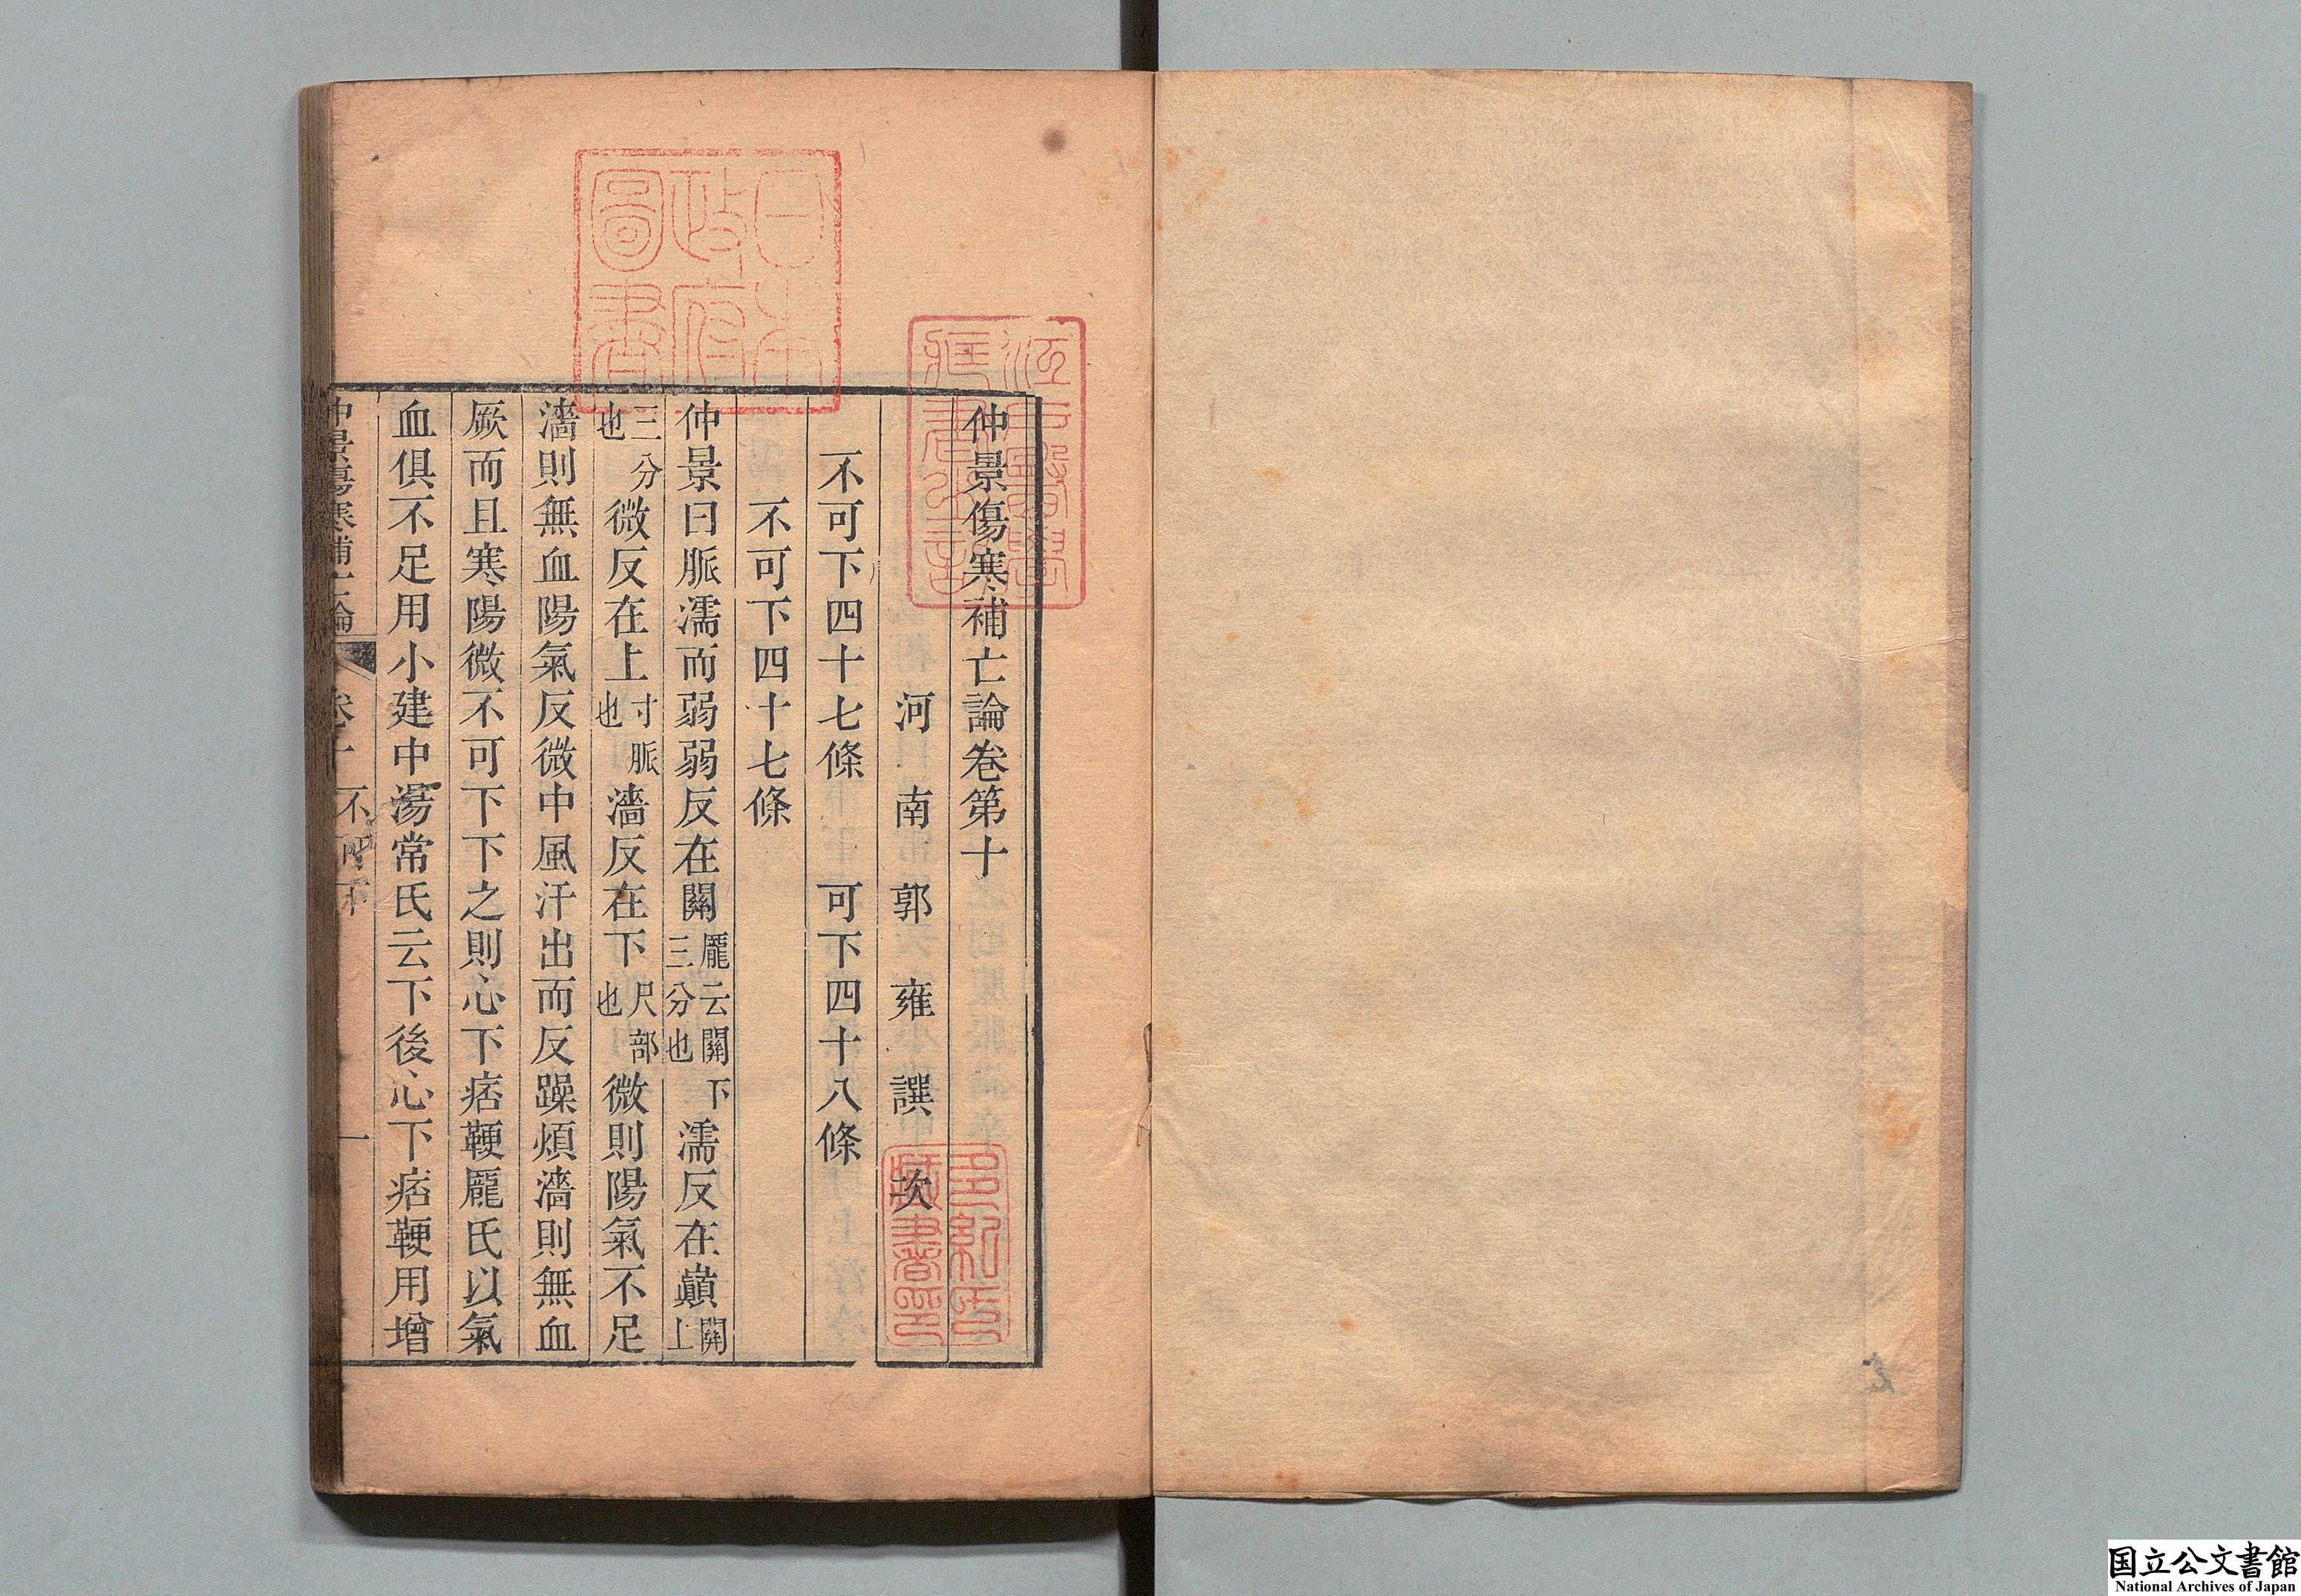 仲景傷寒補亡論卷第十
河南郭雍譔 次
不可下四十七條 可下四十八條
不可下四十七條
仲景曰脈濡而弱弱反在關龐云關下三分也濡反在巓關上
三分也微反在上寸脈也濇反在下尺部也微則陽氣不足
濇則無血陽氣反微中風汗出而反躁煩濇則無血
厥而且寒陽微不可下下之則心下痞鞕龐氏以氣
血俱不足用小建中湯常氏云下後心下痞鞕用增
仲景傷寒補亡論 卷十 不可下 一
日本政府圖書
江戸醫學藏書之記
多紀氏藏書印
国立公文書館
National Archives of Japan